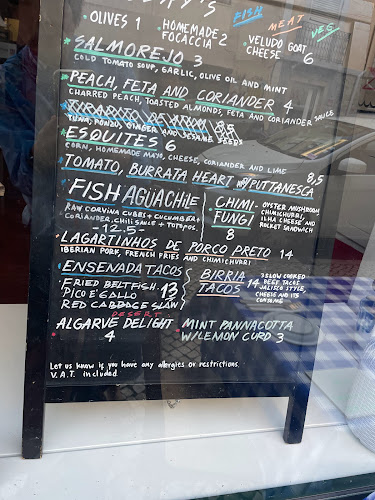 RY'S
FISH
MEAT
VEG
OLIVES 1
HOMEMADE 2
FOCACCIA
VELUDO GOAT
CHEESE 6
SALMOREJO 3
COLD TOMATO SOUP, GARLIC, OLIVE OIL AND MINT
PEACH, FETA AND CORIANDER 4
CHARRED PEACH, TOASTED ALMONDS, FETA AND CORIANDER SAUCE
TUNA, PONZU, GINGER AND SESAME SEEDS
ESQUITES 6
CORN, HOMEMADE MAYO, CHEESE, CORIANDER AND LIME
TOMATO, BURRATA HEART W/ PUTTANESCA 8,5
FISH AGUACHILE
RAW CORVINA CUBES + CUCUMBER +
CORIANDER CHILI SAUCE + TOTOPOS
-12.5-
CHIMI-
FUNGI
8
OYSTER MUSHROOM
CHIMICHURRI,
ILHA CHEESE AND
ROCKET SANDWICH
LAGARTINHOS DE PORCO PRETO 14
IBERIAN PORK, FRENCH FRIES AND CHIMICHURRI
ENSENADA TACOS
FRIED BELTFISH
PICO E GALLO
RED CABBGE SLAW
13
BIRRIA
TACOS 14
SLOW COOKED
BEEF TACOS
JALISCO STYLE,
CHEESE AND ITS
CONSOMÉ
DESERT
ALGARVE DELIGHT
4
MINT PANNACOTTA
W/LEMON CURD 3
Let us know is you have any allergies or restrictions.
V.A.T. included